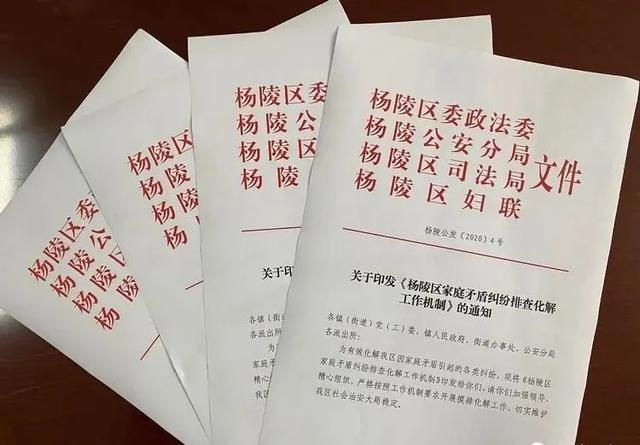 杨陵区委
杨陵公
杨陵区
杨陵
杨陵区
杨陵
杨陵
杨
杨陵区委
杨陵公
杨陵区
杨陵
关于印
各镇（街道）
各派出所：
为有效
家庭矛盾
精心组
我区社会
杨陵区委政法委
杨陵公安分局
杨陵区司法局
杨陵区妇联
文件
杨陵公发〔2020〕4号
关于印发《杨陵区家庭矛盾纠纷排查化解
工作机制》的通知
各镇（街道）党（工）委，镇人民政府、街道办事处、公安分局
各派出所：
为有效化解我区因家庭矛盾引起的各类纠纷，现将《杨陵区
家庭矛盾纠纷排查化解工作机制》印发给你们，请你们加强领导，
精心组织，严格按照工作机制要求开展摸排化解工作，切实维护
我区社会治安大局稳定。